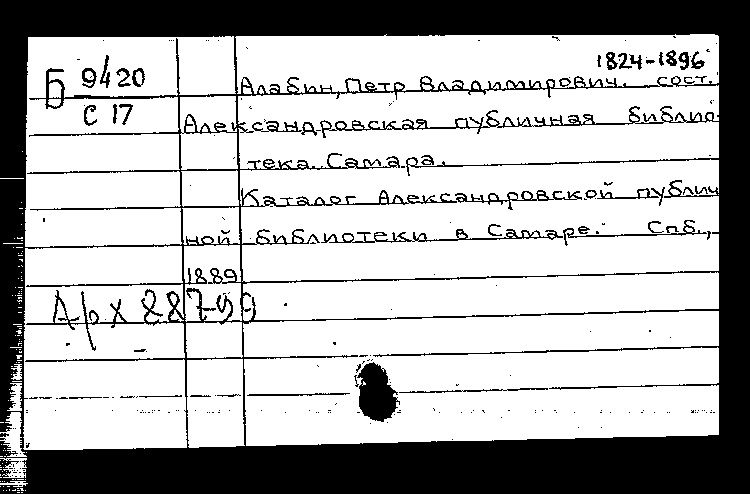 1824-1896
Б 9420
С 17
Алабин, Петр Владимирович. сост.
Александровская публичная библио-
тека. Самара.
Каталог Александровской публич
ной библиотеки в Самаре. Спб.,
1889
Арх 88799